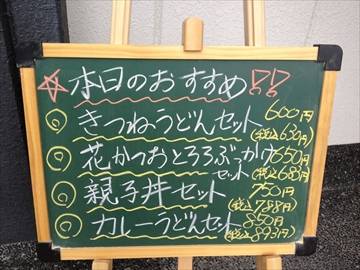 ☆本日のおすすめ!!
◎きつねうどんセット 600円
(税込630円)
◎花かつおとろろぶっかけ 650円
セット(税込683円)
◎親子丼セット 750円
(税込788円)
◎カレーうどんセット 850円
(税込893円)